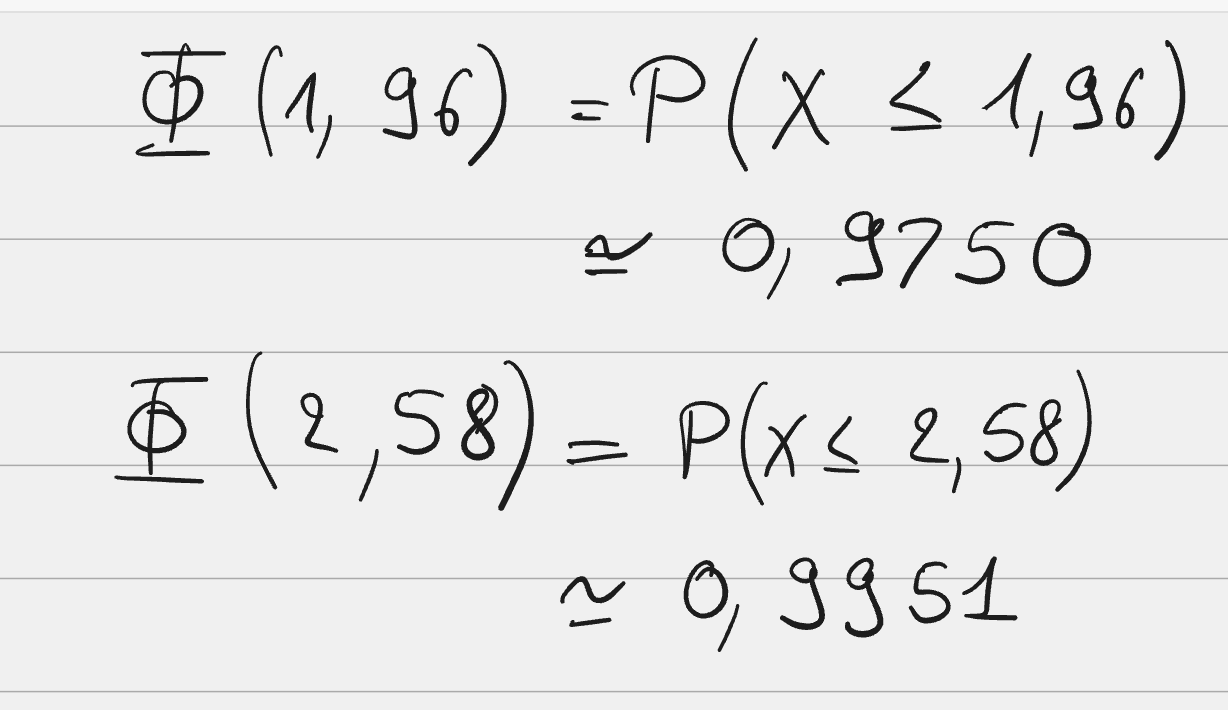 Φ(1,96) = P(X ≤ 1,96)
≃ 0,9750
Φ(2,58) = P(X ≤ 2,58)
≃ 0,9951